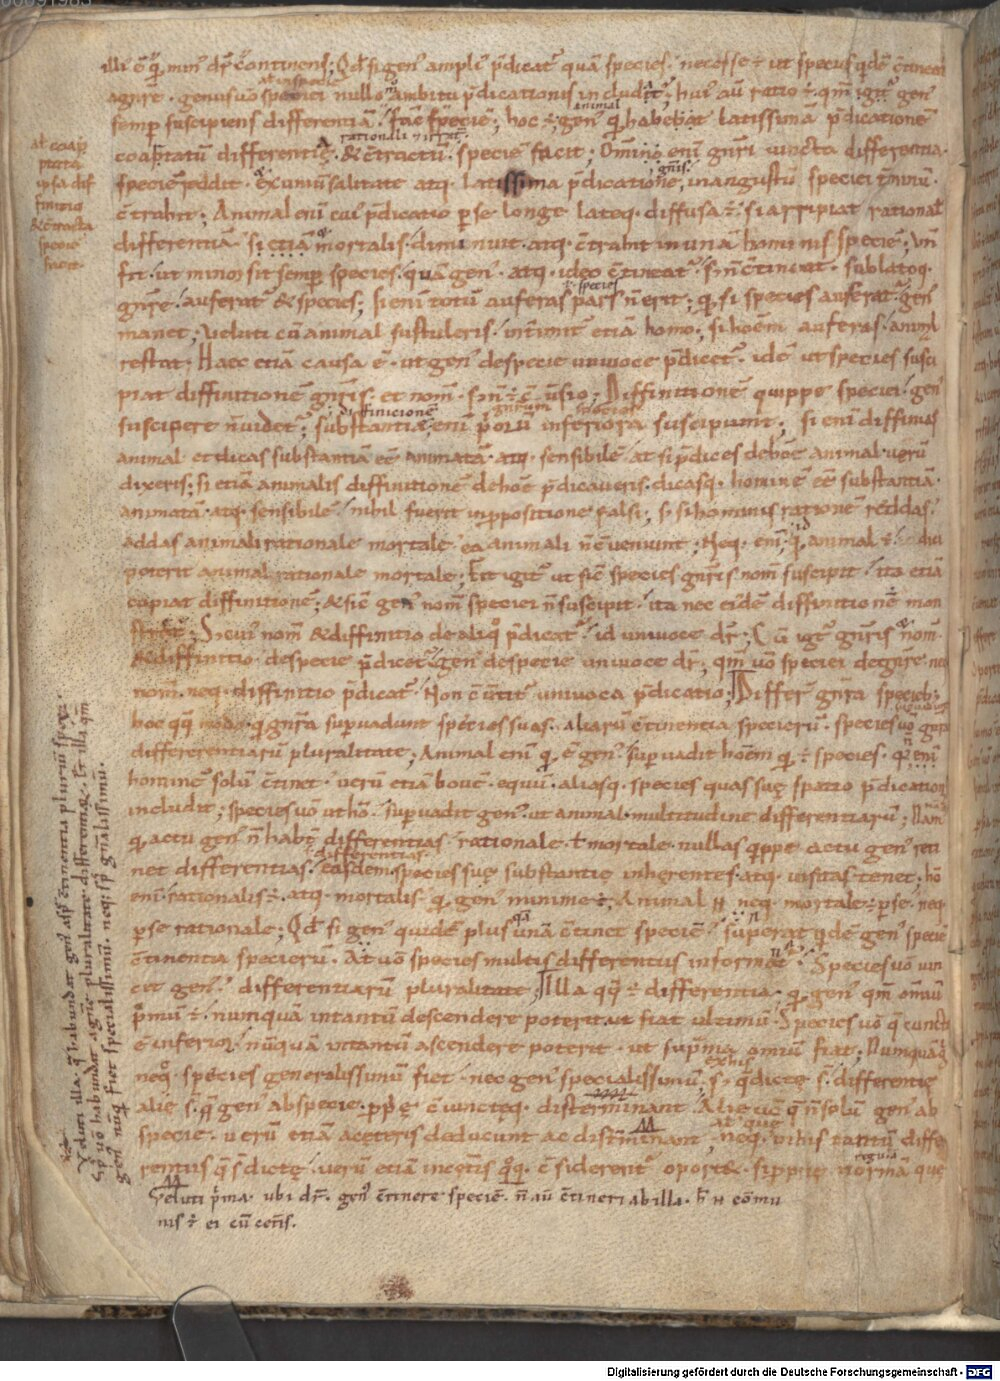 illi ē q̄ min͛ dr̄ c̄ontinens; Qd̄ si gen͛ ampli͛ p̄dicat͛ quā species. necesse ē ut species q̇dē c̄tineat
at inspecie
agn̄re. genus uō speciei nullo ambitu p̄dicationis includit͛; hui͛ aū ratio ē. qm̄ igit͛ gen͛
animal
semp suscipiens differentiā. fac speciē; hoc ē gen͛ q̄ habebat latissimā p̄dicationē
rationali
coaptatū differentiis & c̄tractū. speciē facit; Omnino eni gn̄ri iuncta differentia.
gn̄is.
speciē reddit. & ex uniu͛salitate atq. latissima p̄dicatione, inangustū speciei t̄minū.
c̄trahit; Animal eni cui͛ p̄dicatio p se longe lateq. diffusa ē. si arripiat rationalē
differentiā. si etiā mortalis. diminuit. atq. c̄trahit in unā hominis speciē; Vn̄
fit. ut minor sit semp species. quā gen͛. atq. ideo c̄tineat͛. s; n̄ c̄tineat. sublatoq.
.i. species
gn̄re. auferat͛ & species; si eni totū auferas pars n̄ erit; q̄ si species auferat͛. gen͛
manet; Veluti cū animal sustuleris. int̄imit͛ etiā homo; si hoēm auferas. animl̄
restat. Haec etiā causa ē. ut gen͛ despecie uniuoce p̄dicet͛. idē ut species susci
piat diffinitionē gn̄ris. et nom̄. s; n̄ ē c̄uersio; Diffinitionē quippe speciei. gen͛
diffinicionē
suscipere n̄ uidet͛; substantiā eni priorū inferiora suscipiunt; si eni diffinias
animal. et dicas substantiā eē animatā. atq. sensibilē. at si p̄dices de hoē animal uerū
dixeris; si etiā animalis diffinitionē de hoē p̄dicaueris. dicasq. hominē eē substantiā.
animatā. atq. sensibilē. nihil fuerit inppositione falsi; s; si hominis rationē reddas.
addas animali rationale mortale. ea animali n̄ c̄ueniunt; Neq. eni q̄ animal ē. id dici
poterit animal rationale mortale; Fit igit͛ ut sic̄ species gn̄ris nom̄ suscipit. ita etiā
capiat diffinitionē; & sic̄ gen͛ nom̄ speciei n̄ suscipit. ita nec eidē diffinitionē mon
strat͛; Si cui͛ nom̄ & diffinitio de aliq̊ p̄dicat͛. id uniuoce dr̄; Cū igit͛ gn̄ris nom̄.
& diffinitio. despecie p̄dicet͛. gen͛ despecie uniuoce dr̄; qm̄ uō speciei degn̄re. neq
nom̄. neq. diffinitio p̄dicat͛. Non c̄uertit͛ uniuoca p̄dicatio; Differ̄ gn̄ra specieb;
hoc qq̄ modo. q̄ gn̄ra supuadunt species suas. aliarū c̄tinentia specierū. species uō gn̄ra
differentiarū pluralitate; Animal eni q̄ ē gen͛. supuadit hoēm q̄ ē species. qr̄ eni
hominē solū c̄tinet. uerū etiā bouē. equū. aliasq. species quas suę spatio p̄dicationis
includit; species uō ut hō. supuadit gen͛. ut animal. multitudine differentiarū; Nam
q̄ actu gen͛ n̄ habet differentias. rationale t mortale. nullas q̇ppe actu gen͛ reti
differentias
net differentias. easdem species suę substantię inherentes. atq. insitas tenet; hō
eni rationalis ē. atq. mortalis. q̄ gen͛ minime ē; Animal n̄ neq. mortale ē p se. neq.
p se rationale; Qd̄ si gen͛ quidē plus quā unā c̄tinet speciē. superat q̇dē gen͛ speciē
c̄tinentia specierū. At uō species multis differentiis informat͛. Species uō uin
cit gen͛. differentiarū pluralitate; Illa qq̄ ē differentia. q̄ gen͛ qm̄ om̄iū
p̄mū ē. nunquā intantū descendere poterit. ut fiat ultimū. Species uō q̄ cunctis
ē inferior. nūquā intantū ascendere poterit. ut suprema omniū fiat; Nunquā
exhis
neq̊. species generalissimū fiet. nec gen͛ specialissimū; s; q̄ dictę s͛. differentię
alię s͛. q̄ gen͛ abspecie. pp̄e c̄iunctęq. disterminant. Alię uō q̄ n̄ solū gen͛ ab
at que
specie. uerū etiā aceteris deducunt ac distminant. neq. unius tantū diffe
regula
rentiis q̄ s͛ dictę. uerū etiā incęt̄is q̊q. c̄siderent͛ oport&. si pprię normā que
Veluti p̄ma. ubi dr̄. gen͛ c̄tinere speciē. n̄ aū c̄tineri ab illa. h̄ n̄ cōmu
nis ē ei cū cet̄is.
at coap
tata
ipsa dif
finitio
& c̄tracta
speciē
facit.
Veluti illa. q̄ habundat gen͛ asp̄e c̄tinentia pluriū sp̄erū.
sp̄ uō habundat agn̄e pluralitate differentiarū. & illa qm̄
gen͛ nūq̄ fiet specialissimū. neq; sp̄ gn̄alissimū.
Digitalisierung gefördert durch die Deutsche Forschungsgemeinschaft - DFG